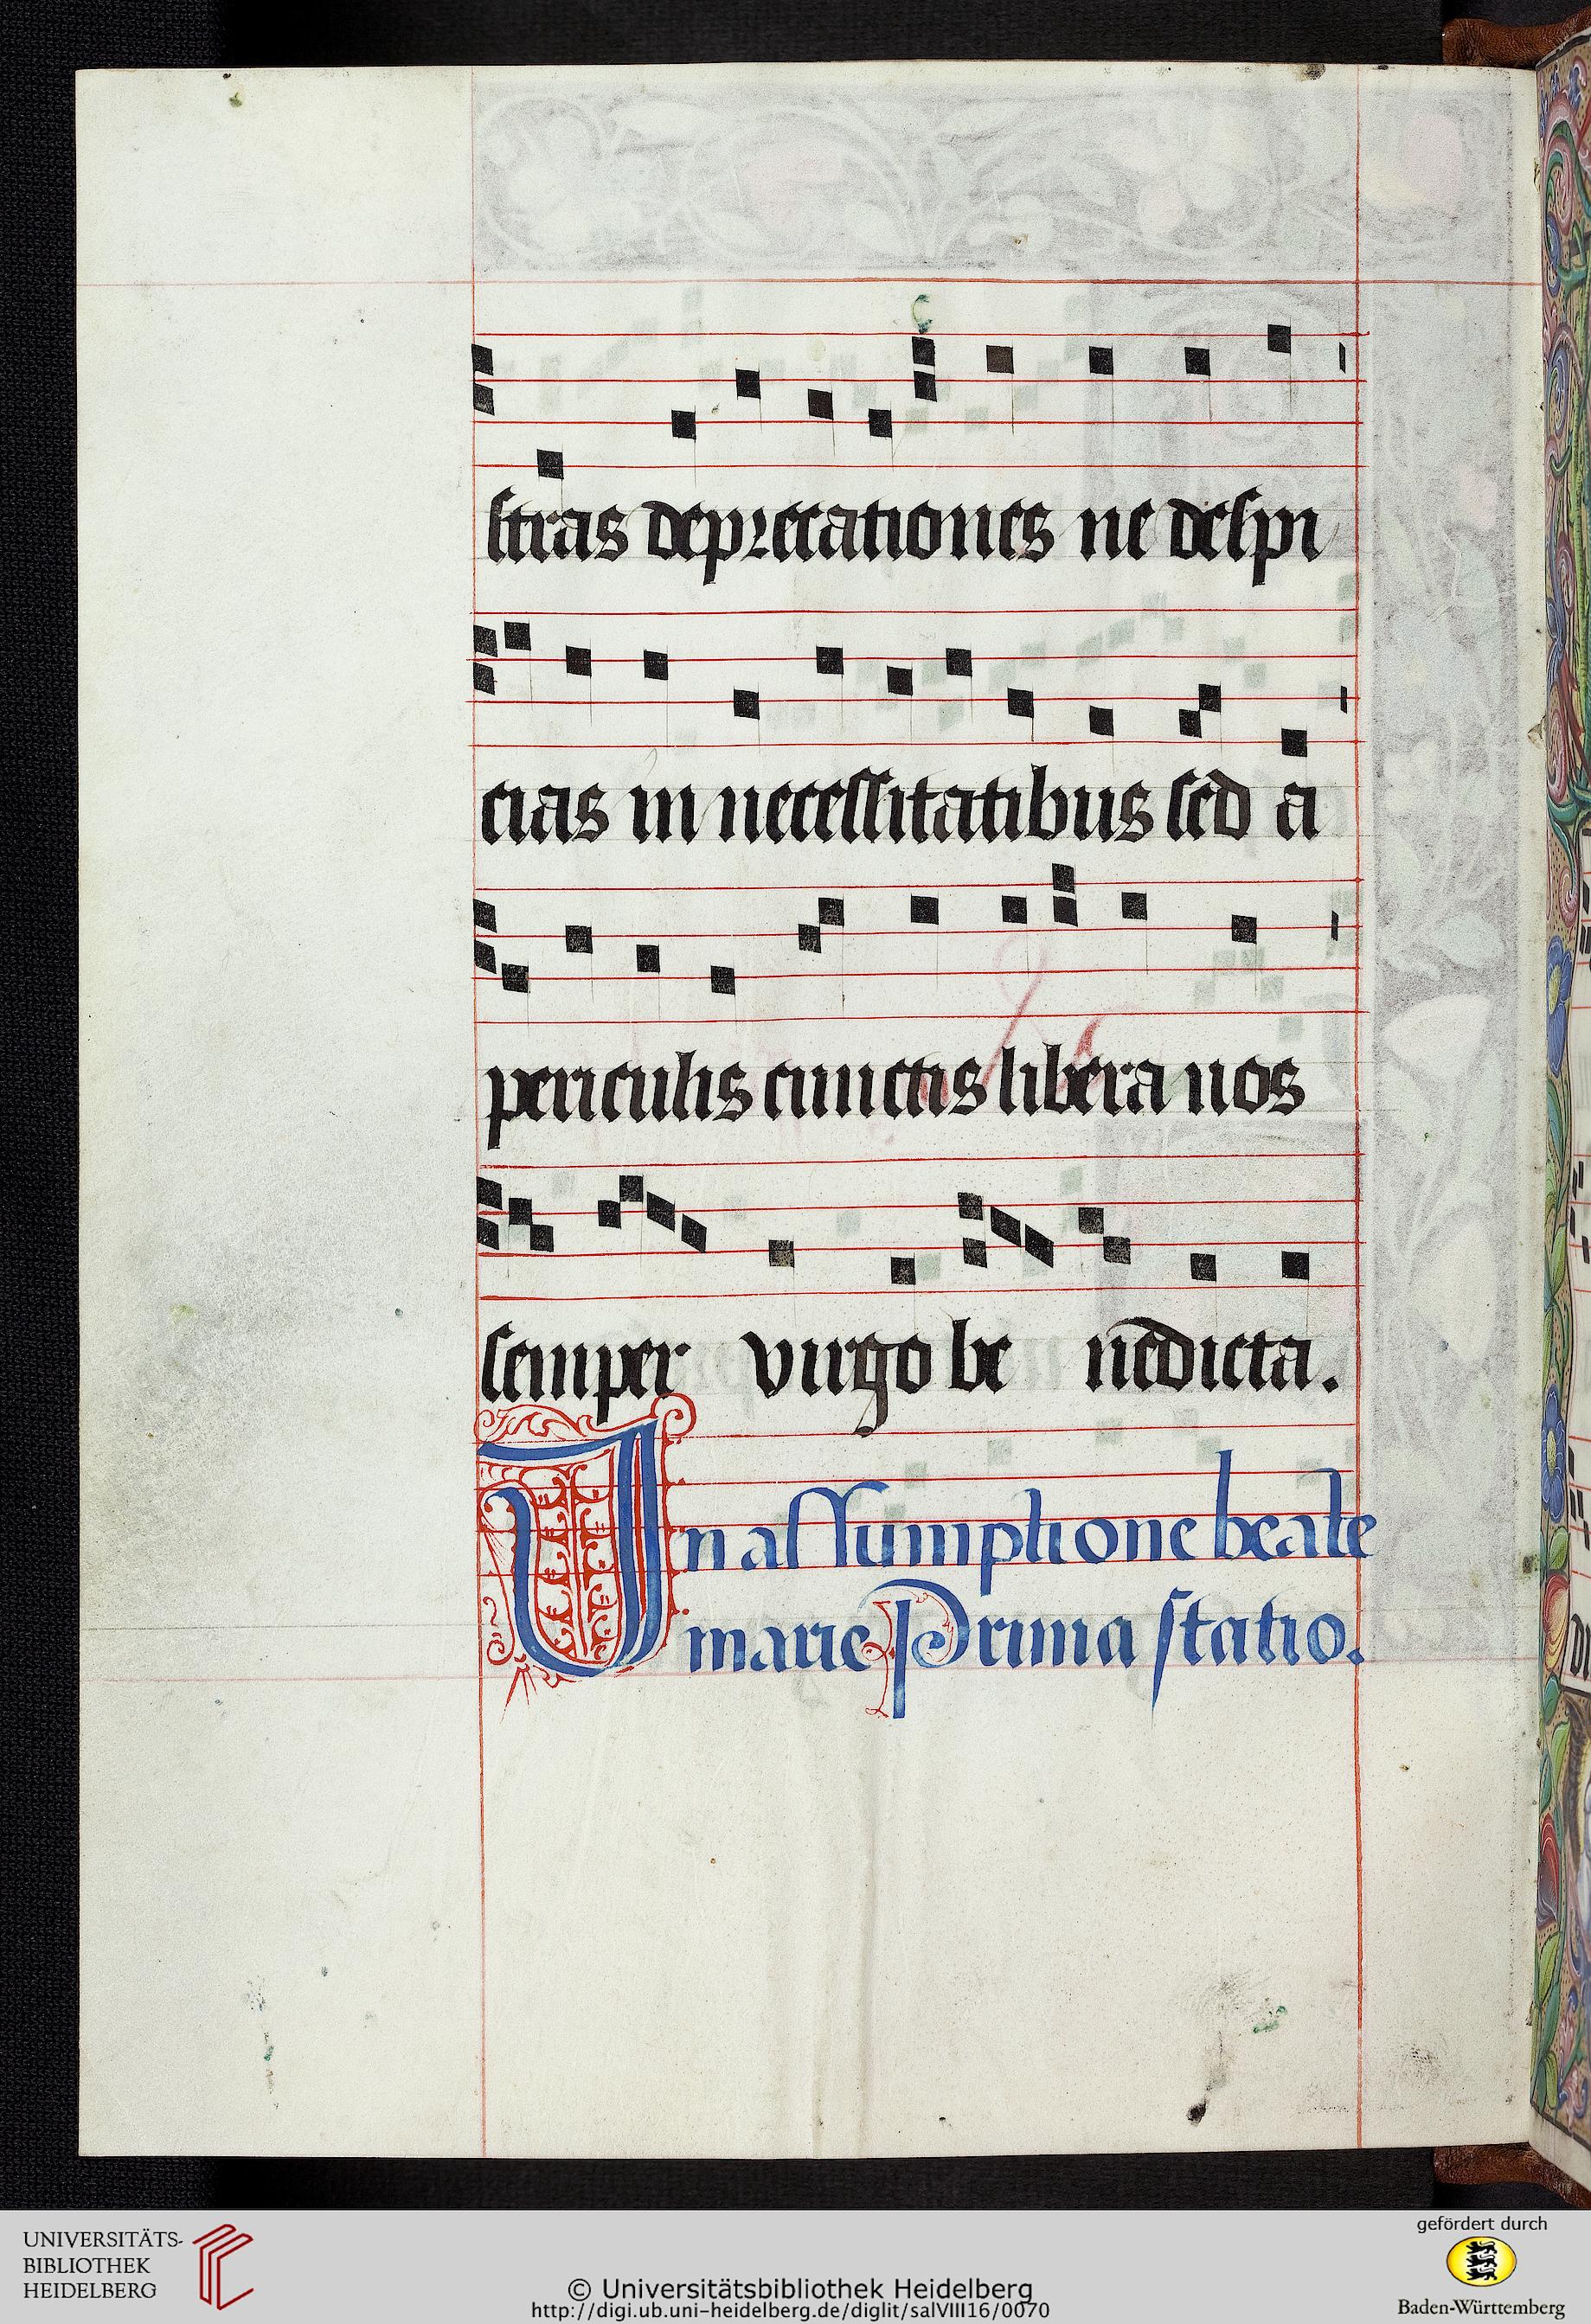 stras deprecationes ne despi
cias in necessitatibus sed a
periculis cunctis libera nos
semper virgo be nedicta.
In assumptione beate
marie Prima statio.
UNIVERSITÄTS-
BIBLIOTHEK
HEIDELBERG
© Universitätsbibliothek Heidelberg
http://digi.ub.uni-heidelberg.de/diglit/salVIII16/0070
gefördert durch
Baden-Württemberg